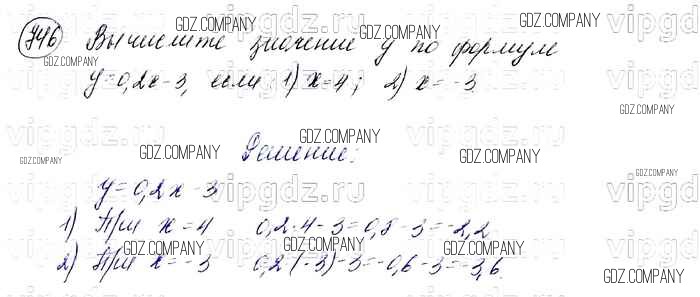 746 Вычислите значение y по формуле
y=0,2x-3, если 1) x=4; 2) x=-3
Решение:
y=0,2x-3
1) При x=4 0,2·4-3=0,8-3=-2,2
2) При x=-3 0,2·(-3)-3=-0,6-3=-3,6.